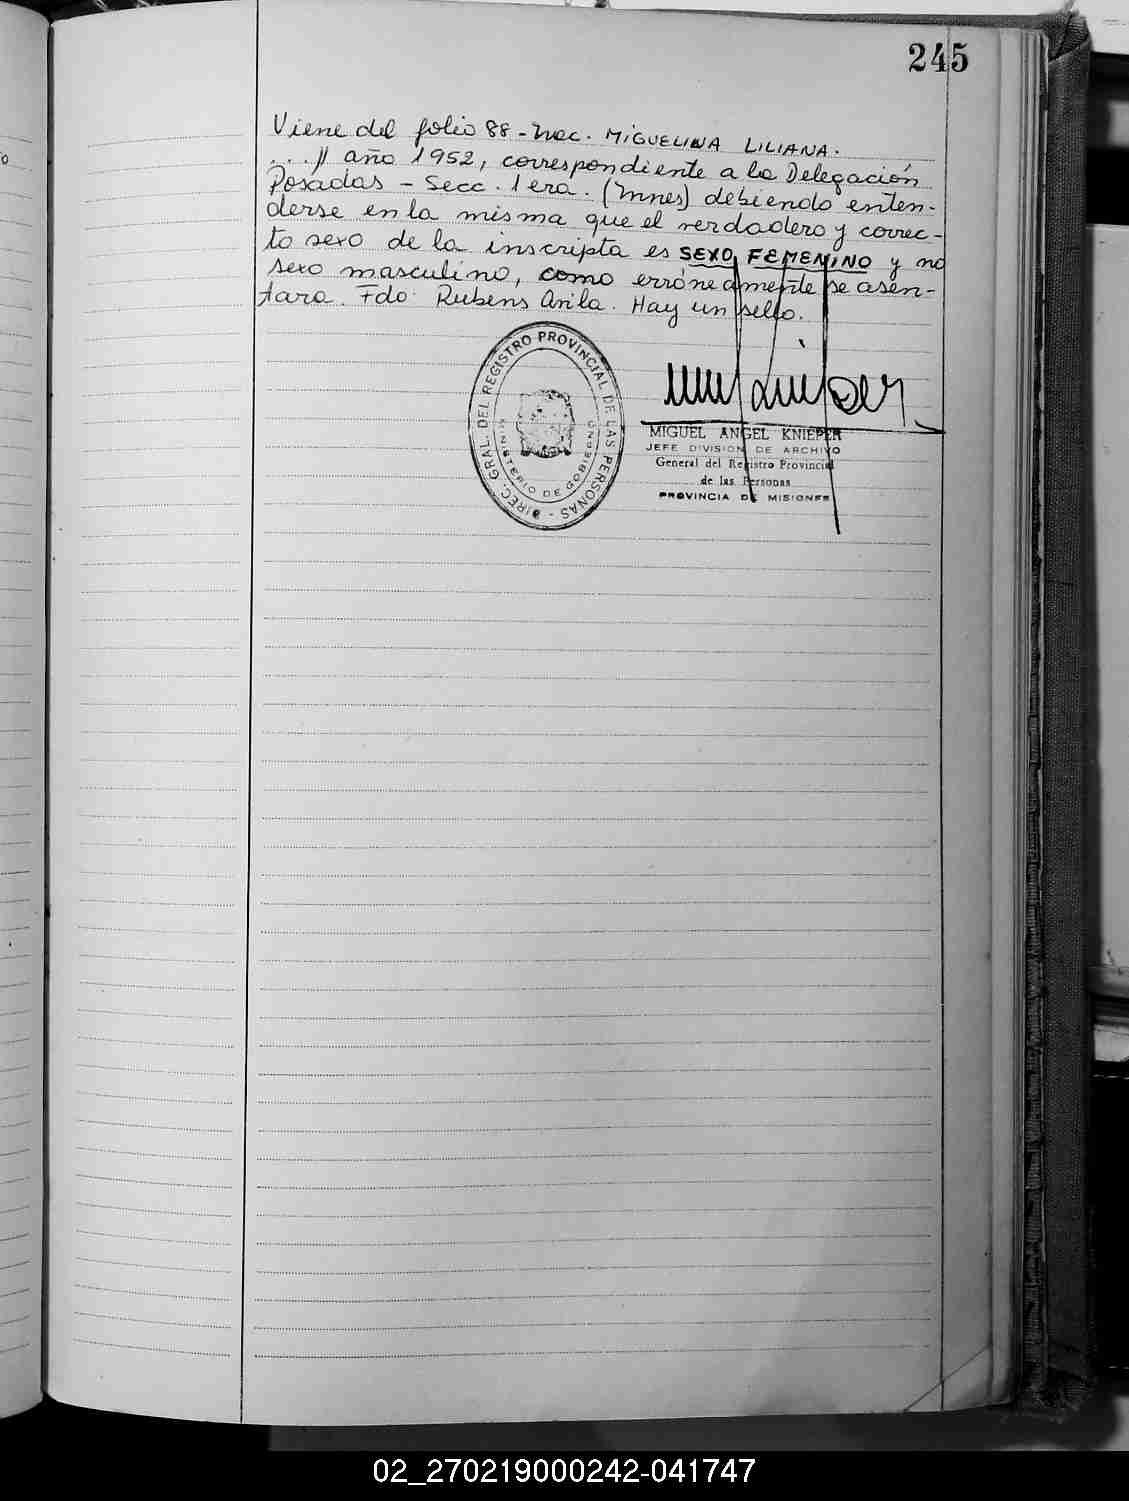 245
Viene del folio 88 - Nac. MIGUELINA LILIANA.
...// año 1952, correspondiente a la Delegación
Posadas - Secc. 1era. (Mnes) debiendo enten-
derse en la misma que el verdadero y correc-
to sexo de la inscripta es SEXO FEMENINO y no
sexo masculino, como erróneamente se asen-
tara. Fdo: Rubens Avila. Hay un sello.
DIREC. GRAL. DEL REGISTRO PROVINCIAL DE LAS PERSONAS -
MINISTERIO DE GOBIERNO
MIGUEL ANGEL KNIEPER
JEFE DIVISION DE ARCHIVO
General del Registro Provincial
de las Personas
PROVINCIA DE MISIONES
02_270219000242-041747